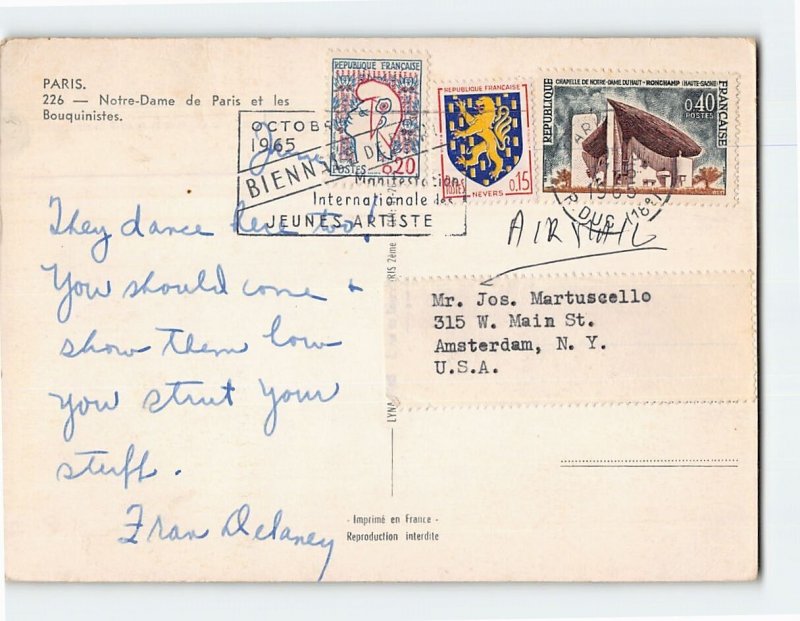 PARIS.
226 — Notre-Dame de Paris et les
Bouquinistes.
RÉPUBLIQUE FRANÇAISE
POSTES 0,20
REPUBLIQUE FRANÇAISE
POSTES
0,15
NEVERS
CHAPELLE DE NOTRE-DAME DU HAUT - RONCHAMP (HAUTE-SAÔNE)
REPUBLIQUE
FRANÇAISE
0,40
POSTES
OCTOBRE
1965
BIENNALE DE
Manifestation
Internationale des
JEUNES ARTISTE
They dance here too!
You should come &
show them how
you strut your
stuff.
Fran Delaney
AIR MAIL
Mr. Jos. Martuscello
315 W. Main St.
Amsterdam, N. Y.
U.S.A.
LYNA
PARIS 2ème
- Imprimé en France -
Reproduction interdite